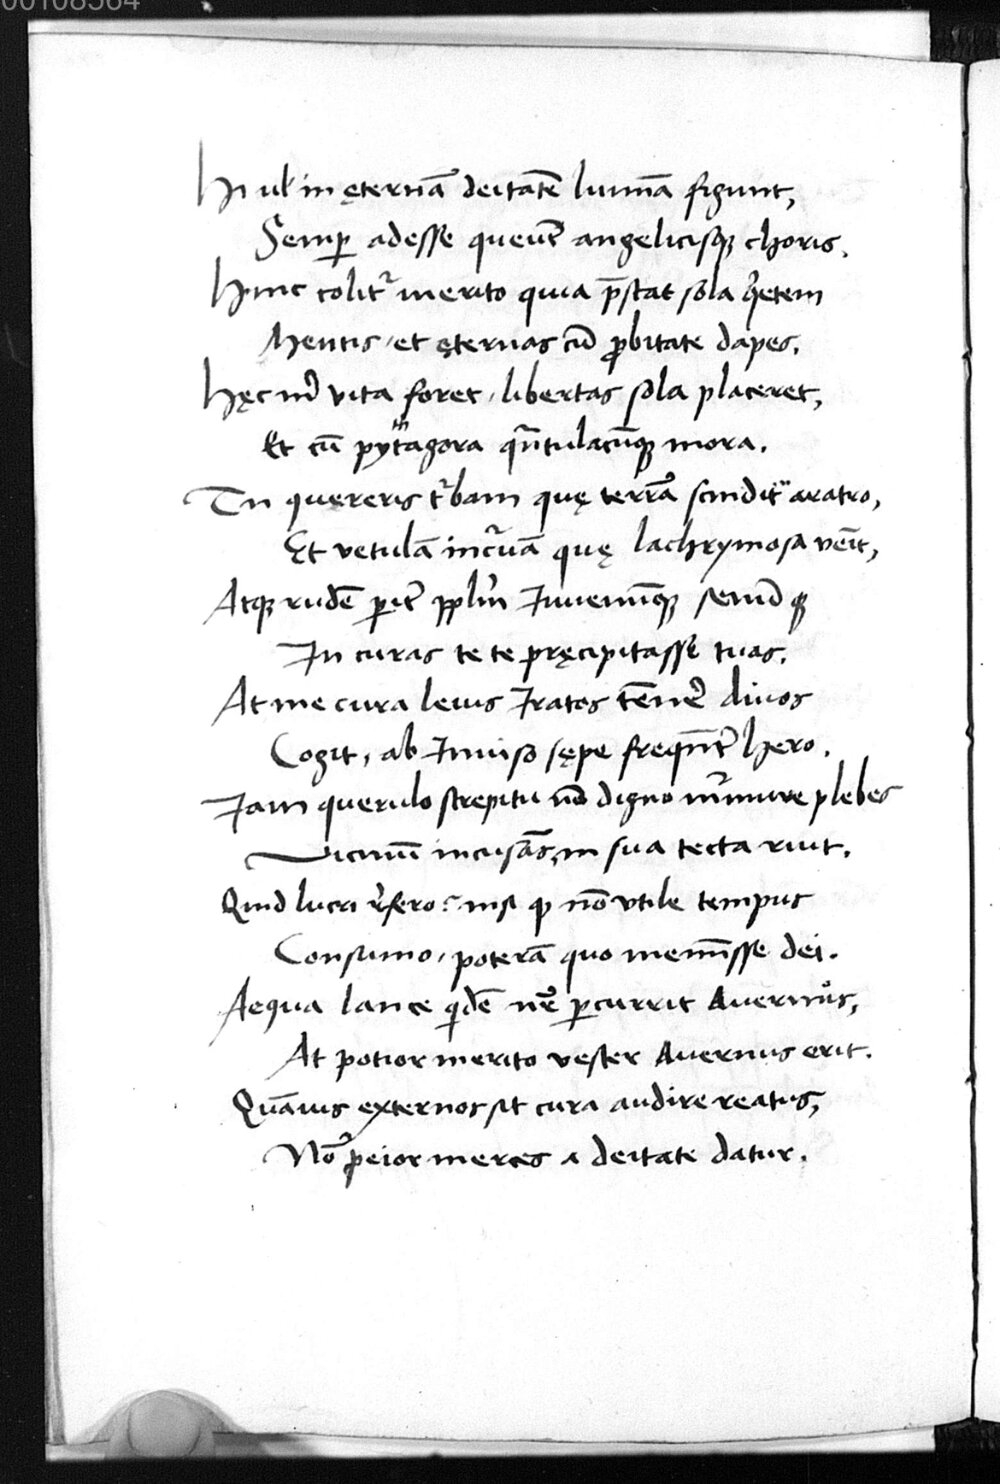 00108564
Hi ul' in ęternā deitatē luminā figunt,
Semꝑ adesse queūt angelicisqꝫ choris.
Hinc colit᷑ merito quia p̄stat sola qͥetem
Mentis, et ęternas cū ꝓbitate dapes.
Hęc m̄ vita foret, libertas sola placeret,
Et cū pythagora qn̄tulacūqꝫ mora.
Tu quereris tᷣbam quę terrā scindit aratro,
Et vetulā incᷣuā quę lachrymosa venīt,
Atqꝫ rudē ꝑit᷑ pplm̄ Iuuenūqꝫ senūqꝫ
In curas te te pręcipitasse tuas.
At me cura leuis Iratos tēnē diuos
Cogit, ab Inuiso sępe freqn̄t᷑ hero.
Iam querulo strepitu nō digno mᷣmure plebes
Vicinū incusās, in sua tecta ruit.
Quid lucri rͤfero? nisi ꝙ nō vtile tempus
Consumo, poterā quo meminisse dei.
Aequa lance qͥdē nr̄ ꝑcurrit Auernus,
At potior merito vester Auernus erit.
Quāuis externos sit cura audire reatus,
Nō peior merces a deitate datur.